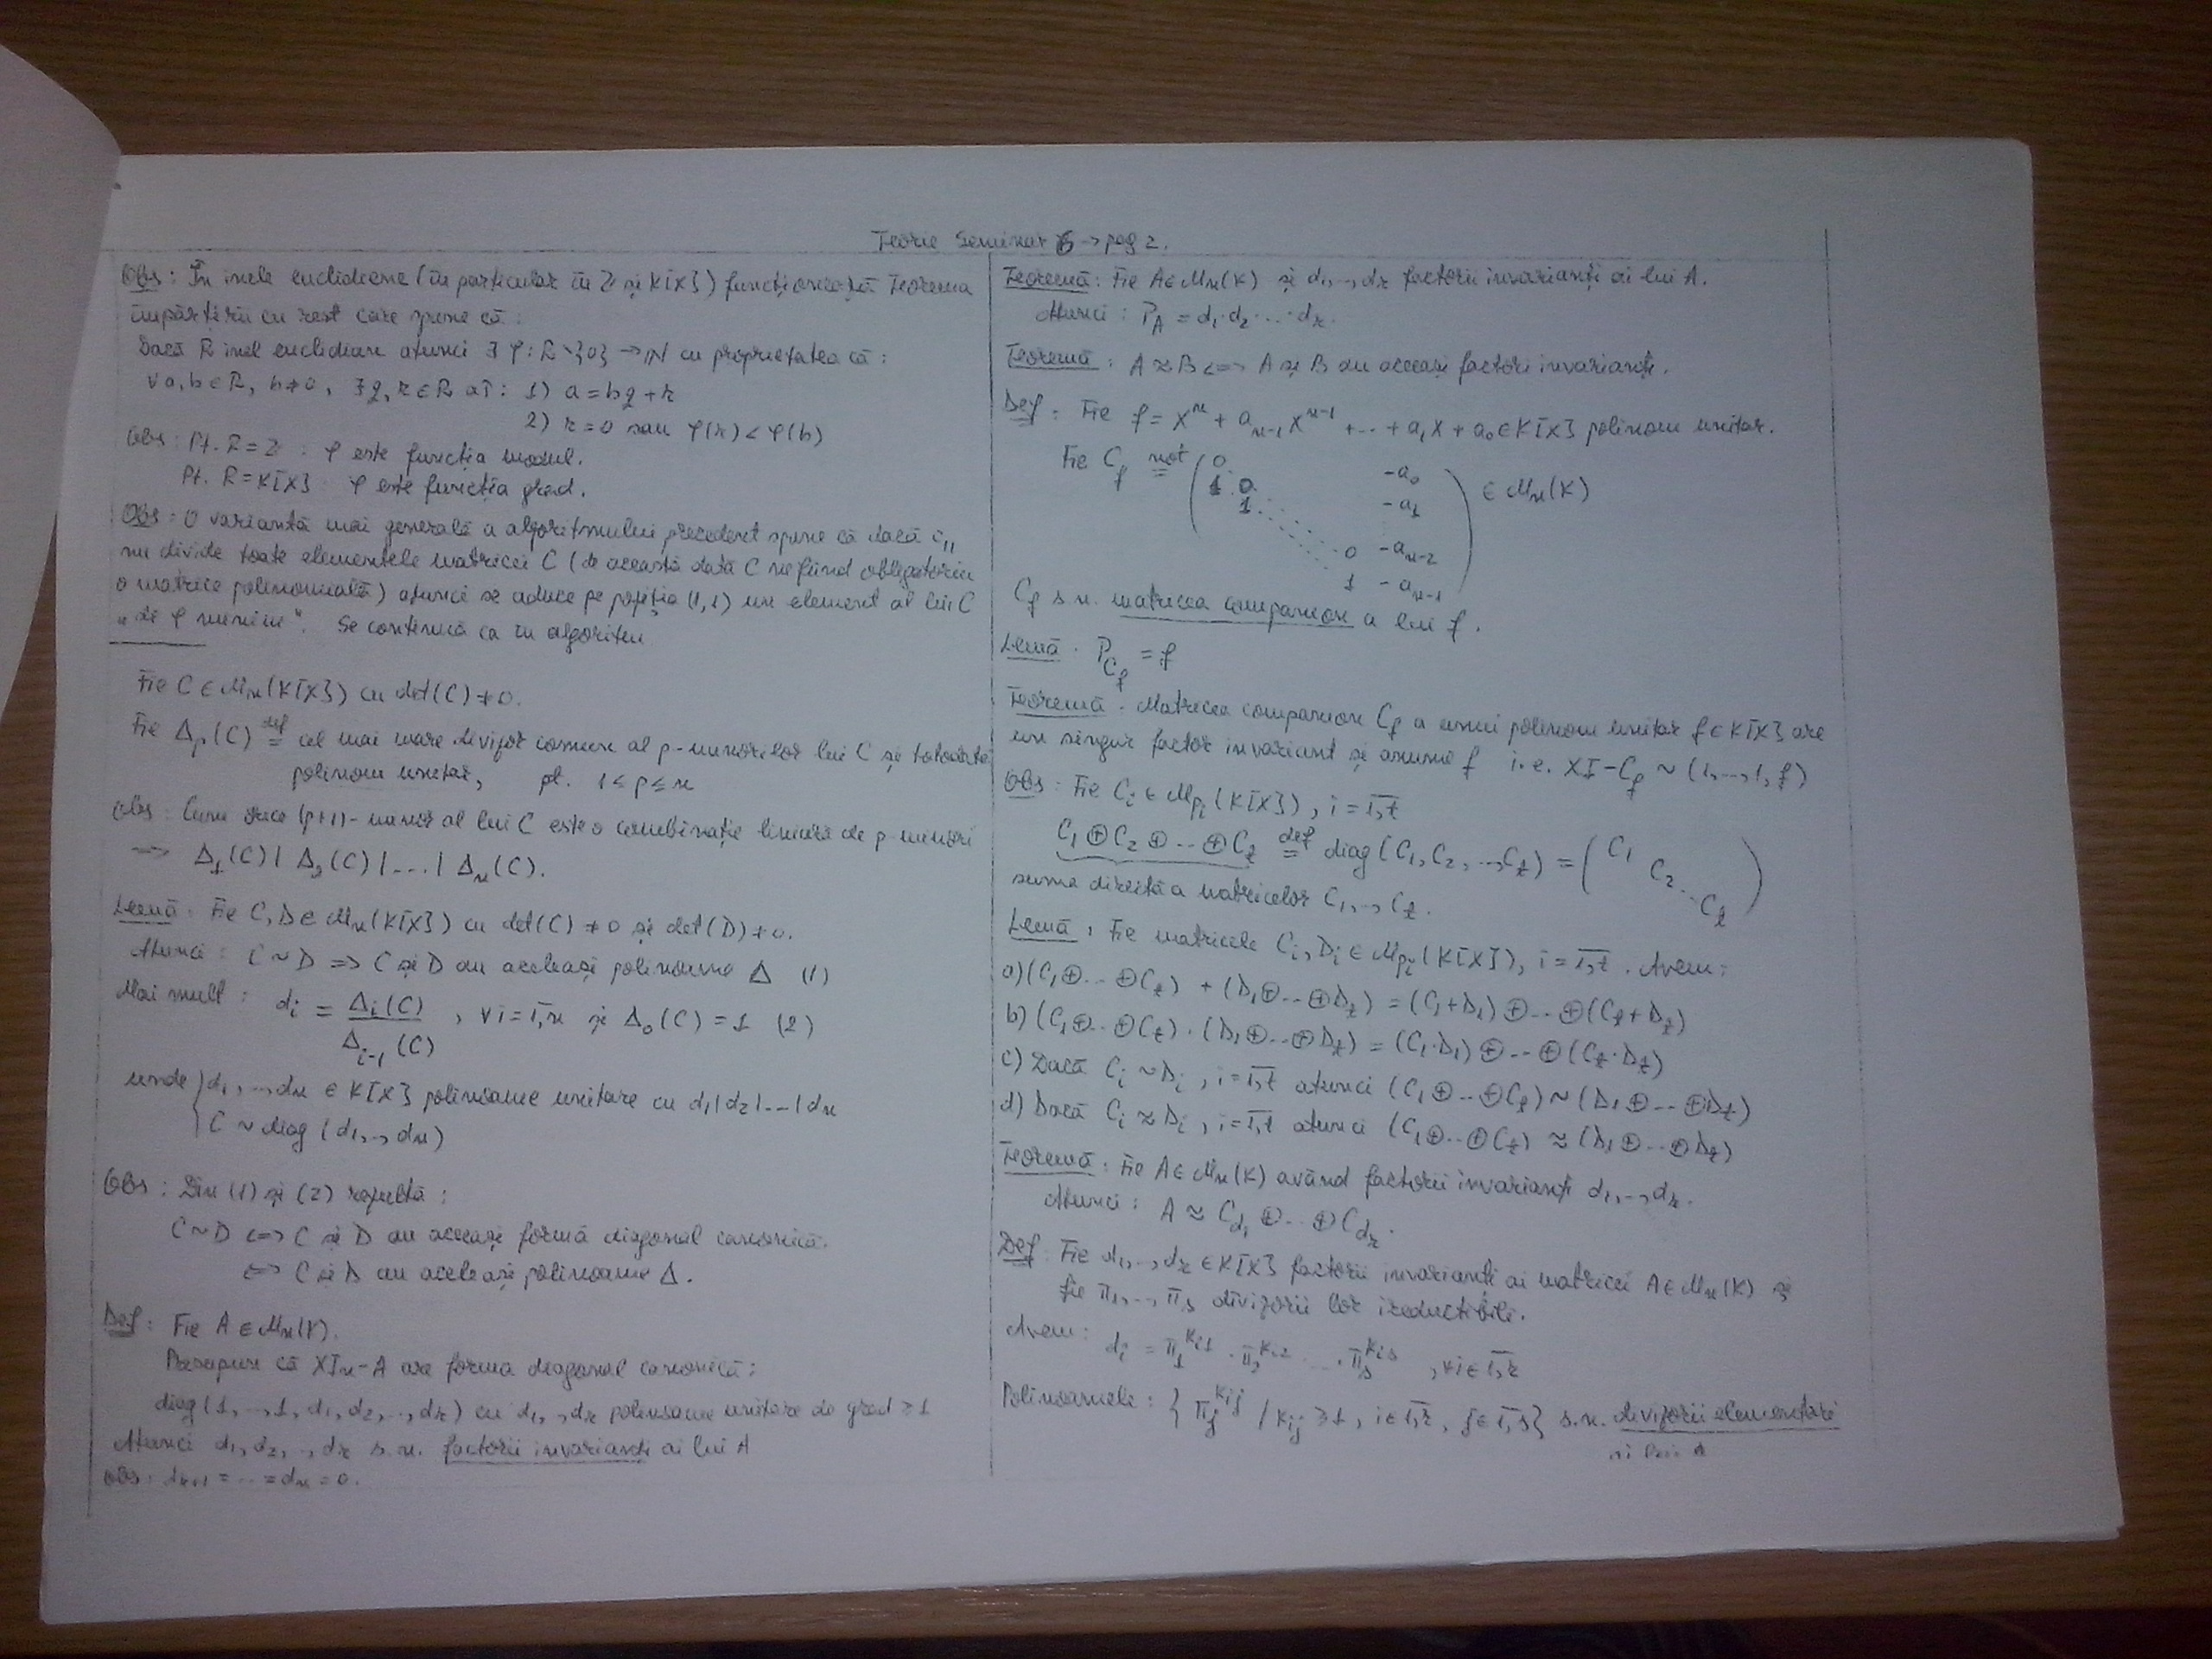 Teorie Seminar 6 → pag 2.
Obs: În inele euclidiene (în particular în ℤ și K[X]) funcționează Teorema
împărțirii cu rest care spune că:
Dacă R inel euclidian atunci ∃ φ: R∖{0} → ℕ cu proprietatea că:
∀ a, b ∈ R, b ≠ 0, ∃ q, r ∈ R aî: 1) a = bq + r
2) r = 0 sau φ(r) < φ(b)
Obs: Pt. R = ℤ : φ este funcția modul.
Pt. R = K[X] φ este funcția grad.
Obs: O variantă mai generală a algoritmului precedent spune că dacă c₁₁
nu divide toate elementele matricei C (de această dată C nefiind obligatoriu
o matrice polinomială) atunci se aduce pe poziția (1,1) un element al lui C
„de φ minim". Se continuă ca în algoritm
Fie C ∈ Mₙ(K[X]) cu det(C) ≠ 0.
Fie Δₚ(C) =^{def} cel mai mare divizor comun al p-minorilor lui C și
polinom unitar, pt. 1 ≤ p ≤ n
Obs: Cum orice (p+1)-minor al lui C este o combinație liniară de p-minori
⇒ Δ₁(C) | Δ₂(C) | ... | Δₙ(C).
Lemă: Fie C, D ∈ Mₙ(K[X]) cu det(C) ≠ 0 și det(D) ≠ 0.
Atunci: C ~ D ⇒ C și D au aceleași polinoame Δ (1)
Mai mult: dᵢ = Δᵢ(C) / Δᵢ₋₁(C), ∀ i = 1,n și Δ₀(C) = 1 (2)
unde { d₁, .., dₙ ∈ K[X] polinoame unitare cu d₁ | d₂ | ... | dₙ
C ~ diag (d₁, .., dₙ)
Obs: Din (1) și (2) rezultă:
C ~ D ⇔ C și D au aceeași formă diagonal canonică.
⇔ C și D au aceleași polinoame Δ.
Def: Fie A ∈ Mₙ(K).
Presupun că XIₙ - A are forma diagonal canonică:
diag(1, .., 1, d₁, d₂, .., dᵣ) cu d₁, .., dᵣ polinoame unitare de grad ≥ 1
Atunci d₁, d₂, .., dᵣ s.n. factorii invarianți ai lui A
Obs: dᵣ₊₁ = ... = dₙ = 0.
Teoremă: Fie A ∈ Mₙ(K) și d₁, .., dᵣ factorii invarianți ai lui A.
Atunci: P_A = d₁·d₂·...·dᵣ.
Teoremă: A ≈ B ⇔ A și B au aceeași factori invarianți.
Def: Fie f = Xⁿ + aₙ₋₁Xⁿ⁻¹ + ... + a₁X + a₀ ∈ K[X] polinom unitar.
Fie C_f =^{not} ( 0 -a₀
1 0 -a₁ ) ∈ Mₙ(K)
1
0 -aₙ₋₂
1 -aₙ₋₁
C_f s.n. matricea companion a lui f.
Lemă: P_{C_f} = f
Teoremă: Matricea companion C_f a unui polinom unitar f ∈ K[X] are
un singur factor invariant și anume f i.e. XI - C_f ~ (1, ..., 1, f)
Obs: Fie Cᵢ ∈ M_{pᵢ}(K[X]), i = 1,t
C₁ ⊕ C₂ ⊕ ... ⊕ Cₜ =^{def} diag(C₁, C₂, .., Cₜ) = ( C₁ C₂ ... Cₜ )
suma directă a matricelor C₁, .., Cₜ.
Lemă: Fie matricele Cᵢ, Dᵢ ∈ M_{pᵢ}(K[X]), i = 1,t. Avem:
a) (C₁ ⊕ ... ⊕ Cₜ) + (D₁ ⊕ ... ⊕ Dₜ) = (C₁ + D₁) ⊕ ... ⊕ (Cₜ + Dₜ)
b) (C₁ ⊕ ... ⊕ Cₜ) · (D₁ ⊕ ... ⊕ Dₜ) = (C₁·D₁) ⊕ ... ⊕ (Cₜ·Dₜ)
c) Dacă Cᵢ ~ Dᵢ, i = 1,t atunci (C₁ ⊕ ... ⊕ Cₜ) ~ (D₁ ⊕ ... ⊕ Dₜ)
d) Dacă Cᵢ ≈ Dᵢ, i = 1,t atunci (C₁ ⊕ ... ⊕ Cₜ) ≈ (D₁ ⊕ ... ⊕ Dₜ)
Teoremă: Fie A ∈ Mₙ(K) având factorii invarianți d₁, .., dᵣ.
Atunci: A ≈ C_{d₁} ⊕ ... ⊕ C_{dᵣ}.
Def: Fie d₁, .., dᵣ ∈ K[X] factorii invarianți ai matricei A ∈ Mₙ(K) și
fie π₁, .., πₛ divizorii lor ireductibili.
Avem: dᵢ = π₁^{kᵢ₁} · π₂^{kᵢ₂} · ... · πₛ^{kᵢₛ}, ∀ i ∈ 1,r
Polinoamele: { πⱼ^{kᵢⱼ} / kᵢⱼ ≥ 1, i ∈ 1,r, j ∈ 1,s } s.n. divizorii elementari
ai lui A